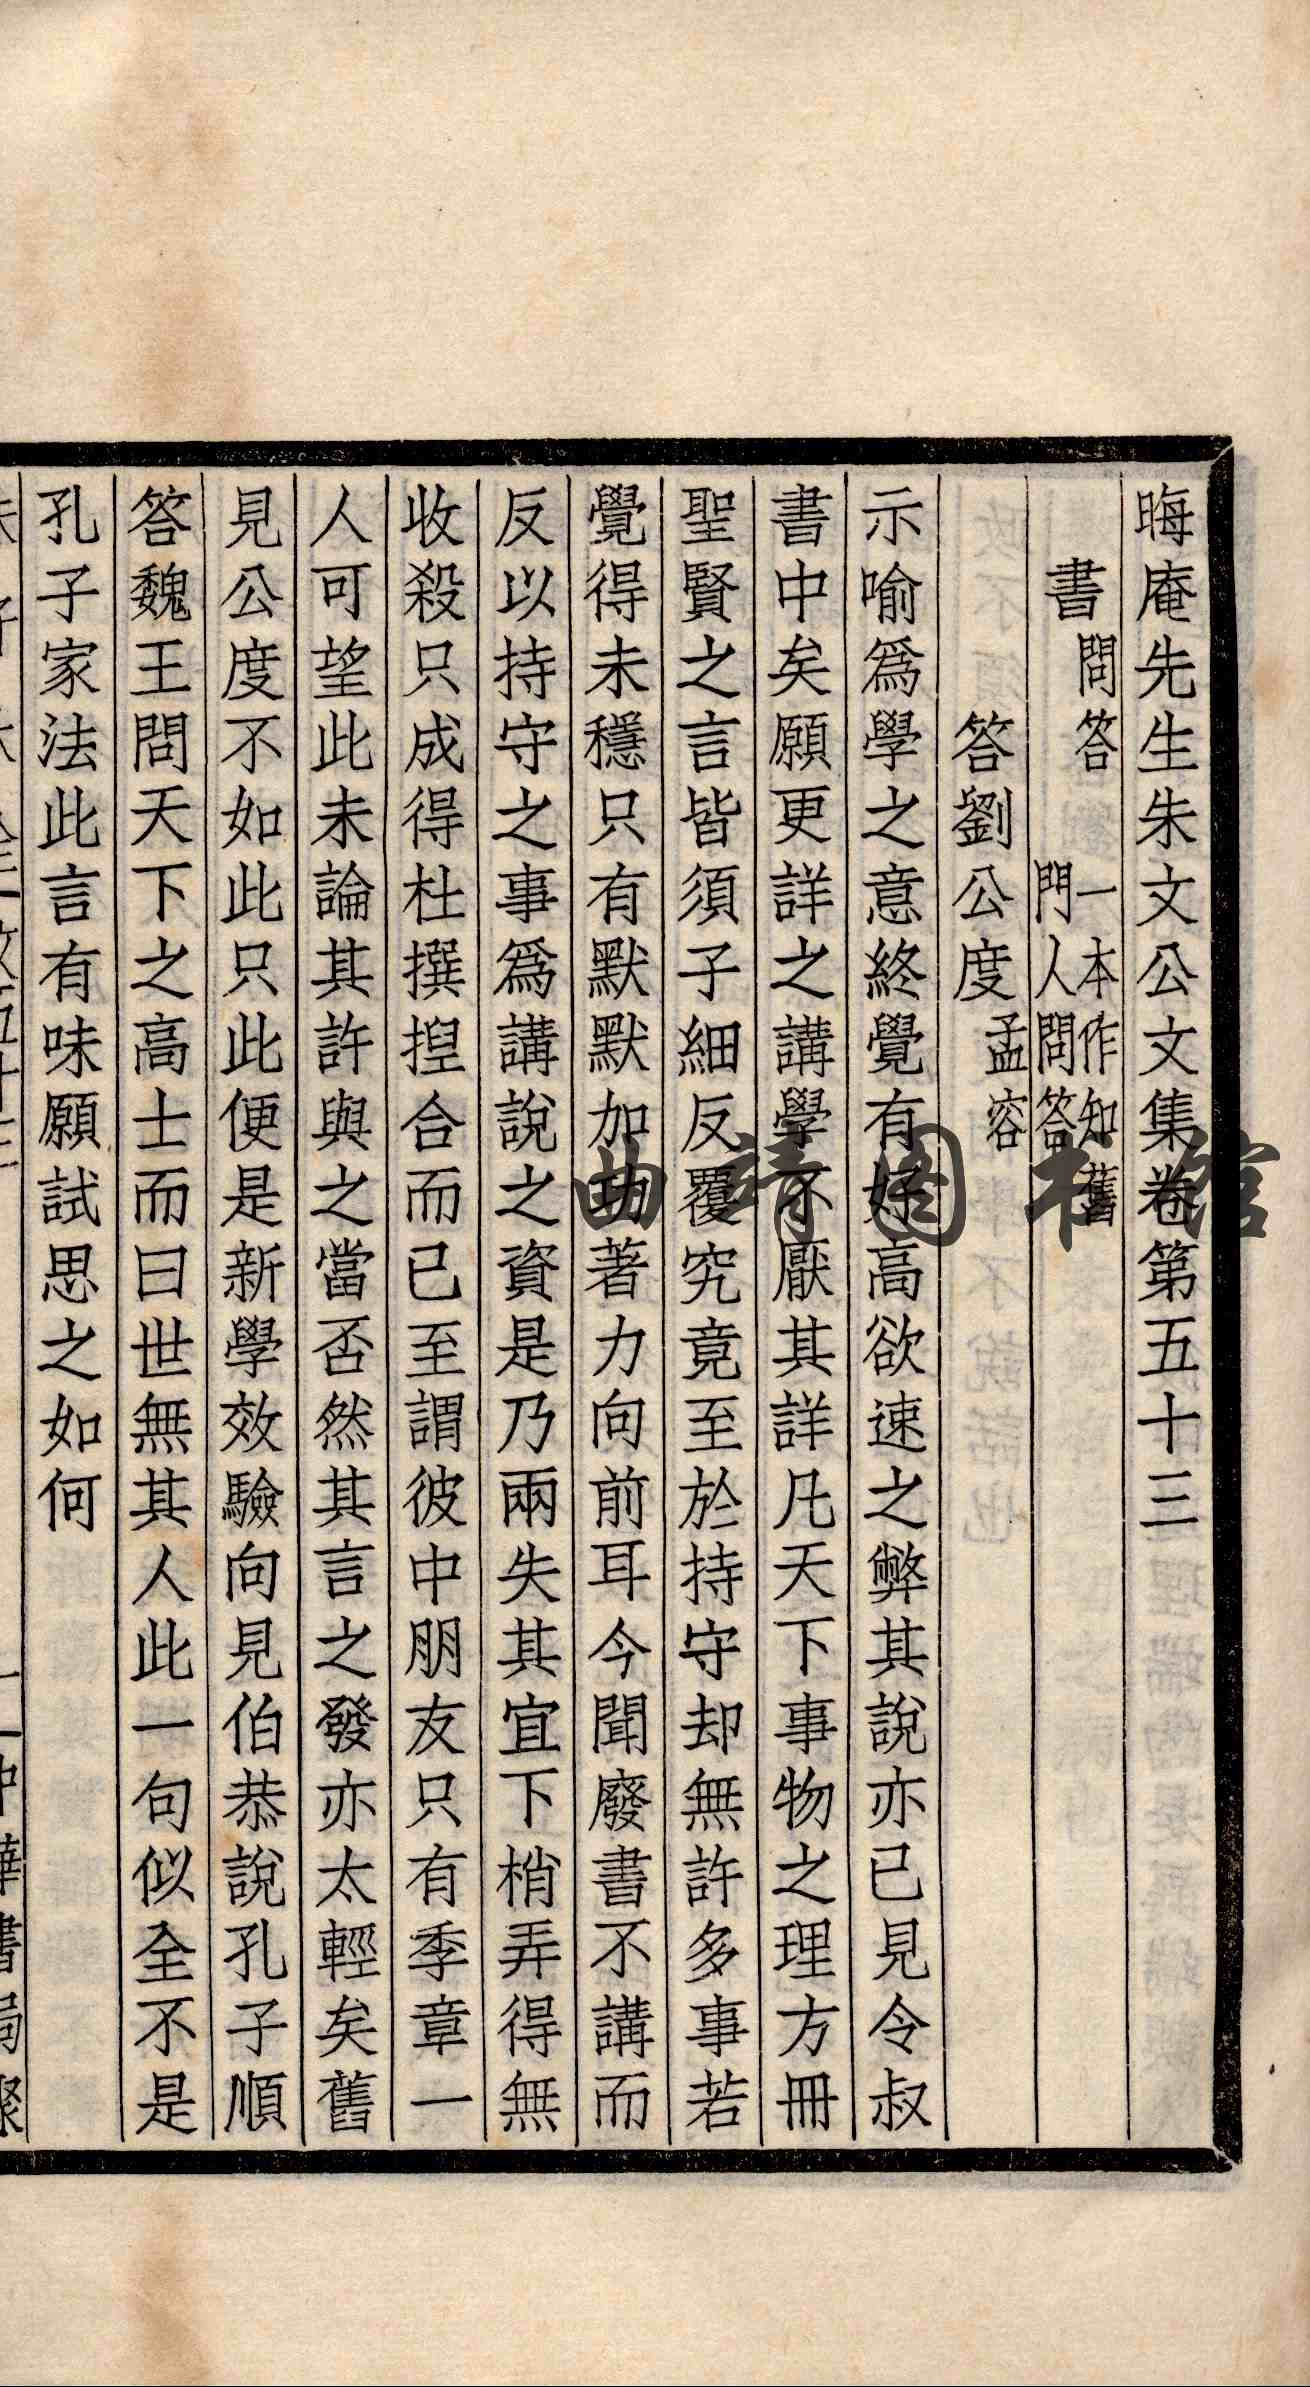 晦庵先生朱文公文集卷第五十三
書 問答 一本作知舊門人問答
答劉公度 孟容
示喻爲學之意終覺有好高欲速之弊其說亦已見令叔
書中矣願更詳之講學不厭其詳凡天下事物之理方冊
聖賢之言皆須子細反覆究竟至於持守却無許多事若
覺得未穩只有默默加功著力向前耳今聞廢書不講而
反以持守之事爲講說之資是乃兩失其宜下梢弄得無
收殺只成得杜撰揑合而已至謂彼中朋友只有季章一
人可望此未論其許與之當否然其言之發亦太輕矣舊
見公度不如此只此便是新學效驗向見伯恭說孔子順
答魏王問天下之高士而曰世無其人此一句似全不是
孔子家法此言有味願試思之如何
曲靖图书馆